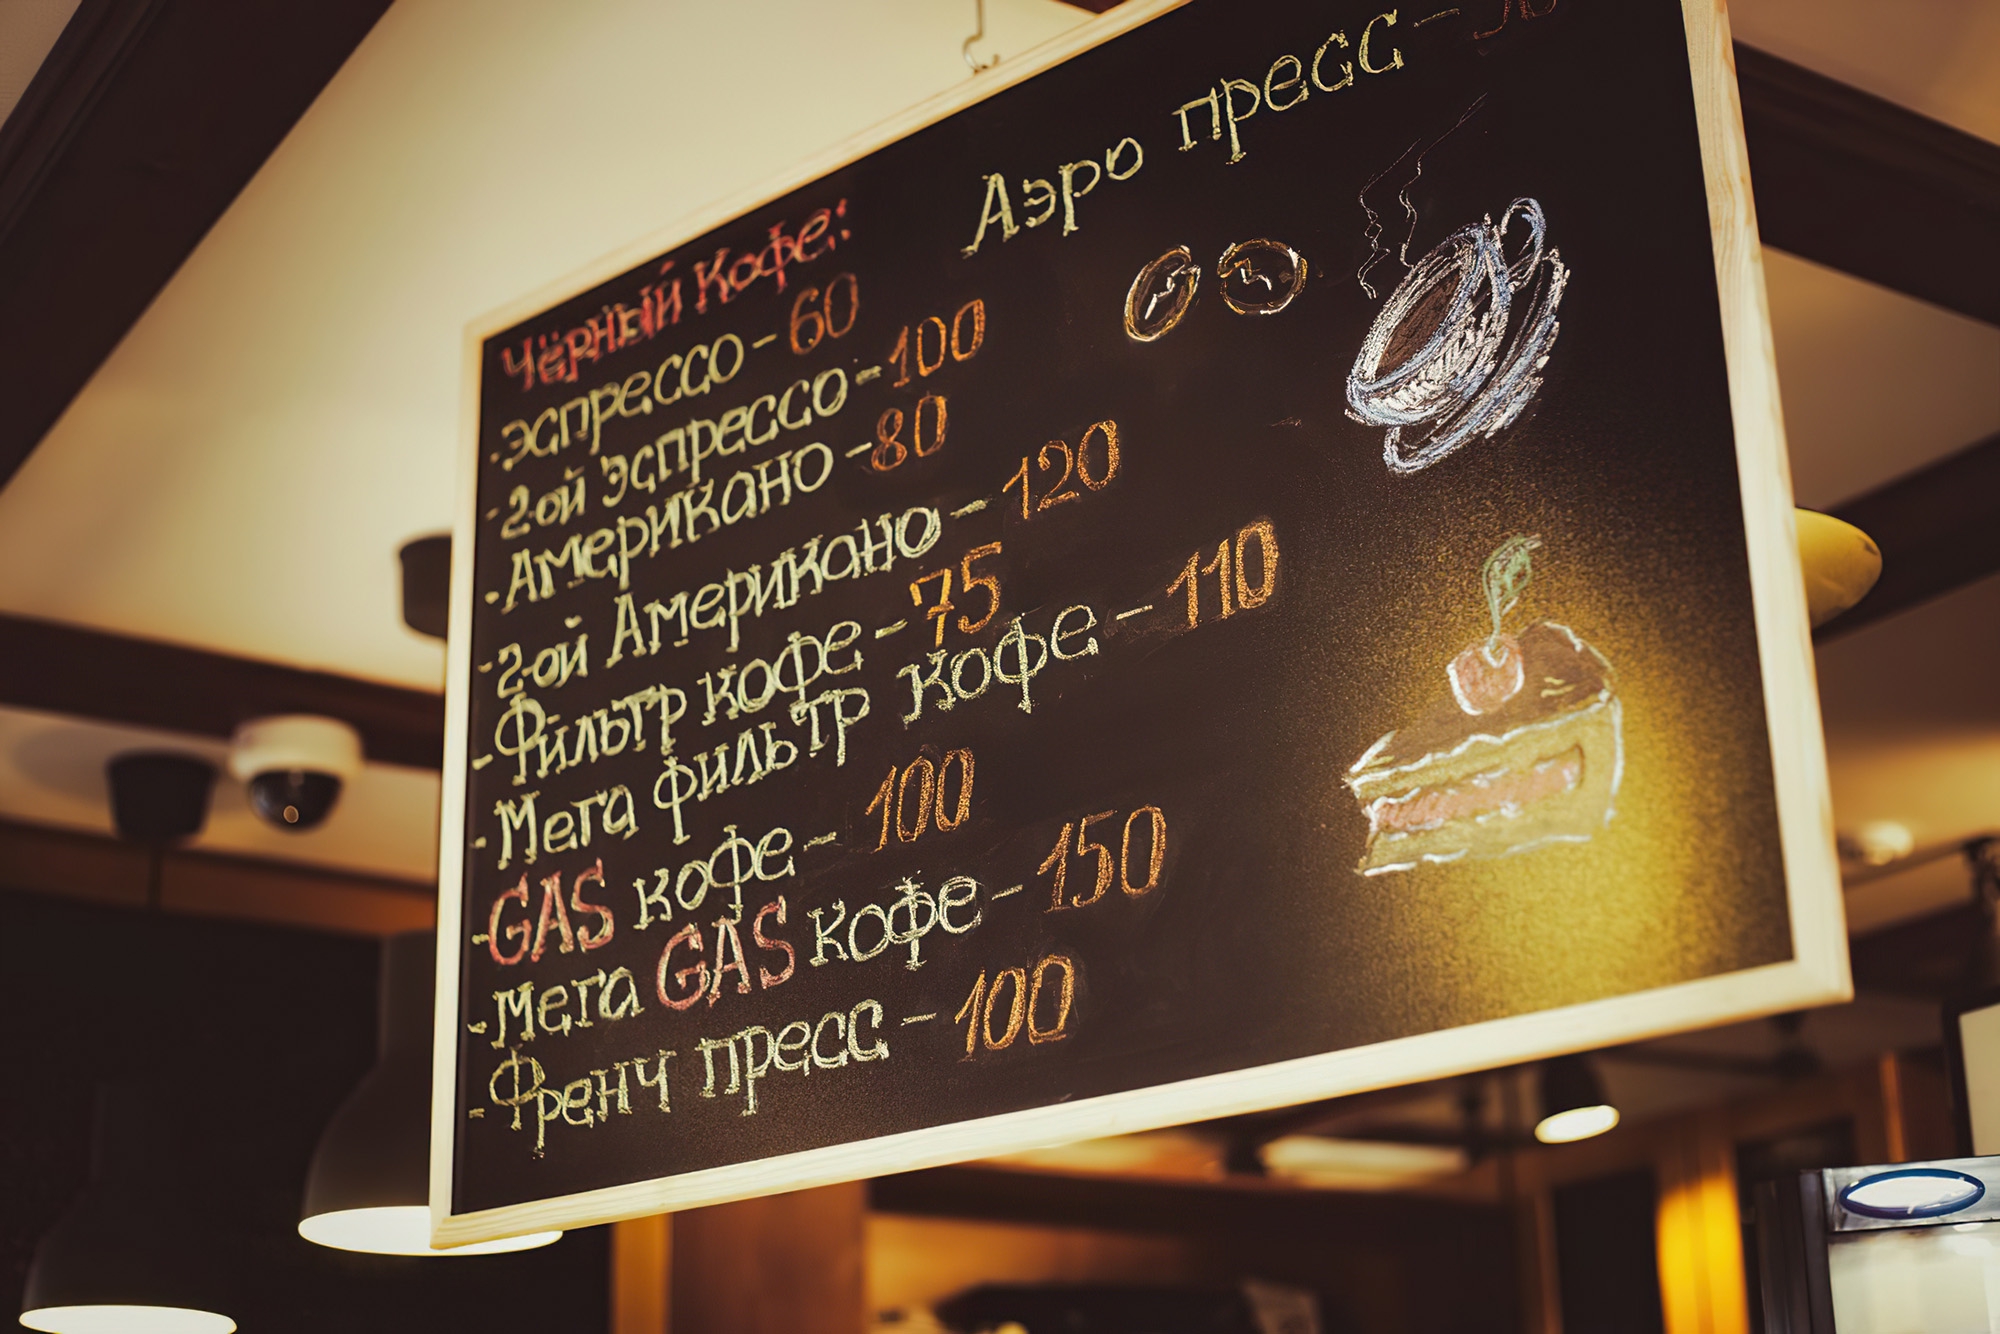 Чёрный кофе:
- эспрессо - 60
- 2-ой эспрессо - 100
- Американо - 80
- 2-ой Американо - 120
- Фильтр кофе - 75
- Мега фильтр кофе - 110
- GAS кофе - 100
- Мега GAS кофе - 150
- Френч пресс - 100
Аэро пресс -